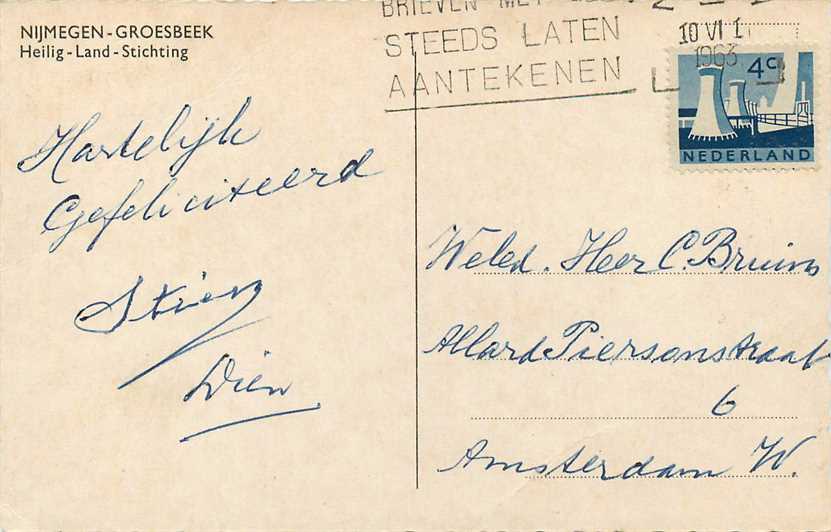 NIJMEGEN-GROESBEEK
Heilig-Land-Stichting
BRIEVEN MET
STEEDS LATEN
AANTEKENEN
10 VI 1
1963
4c
NEDERLAND
Hartelijk
Gefeliciteerd
Stien
Dien
Weled. Heer C. Bruins
Allard Piersonstraat
6
Amsterdam W.